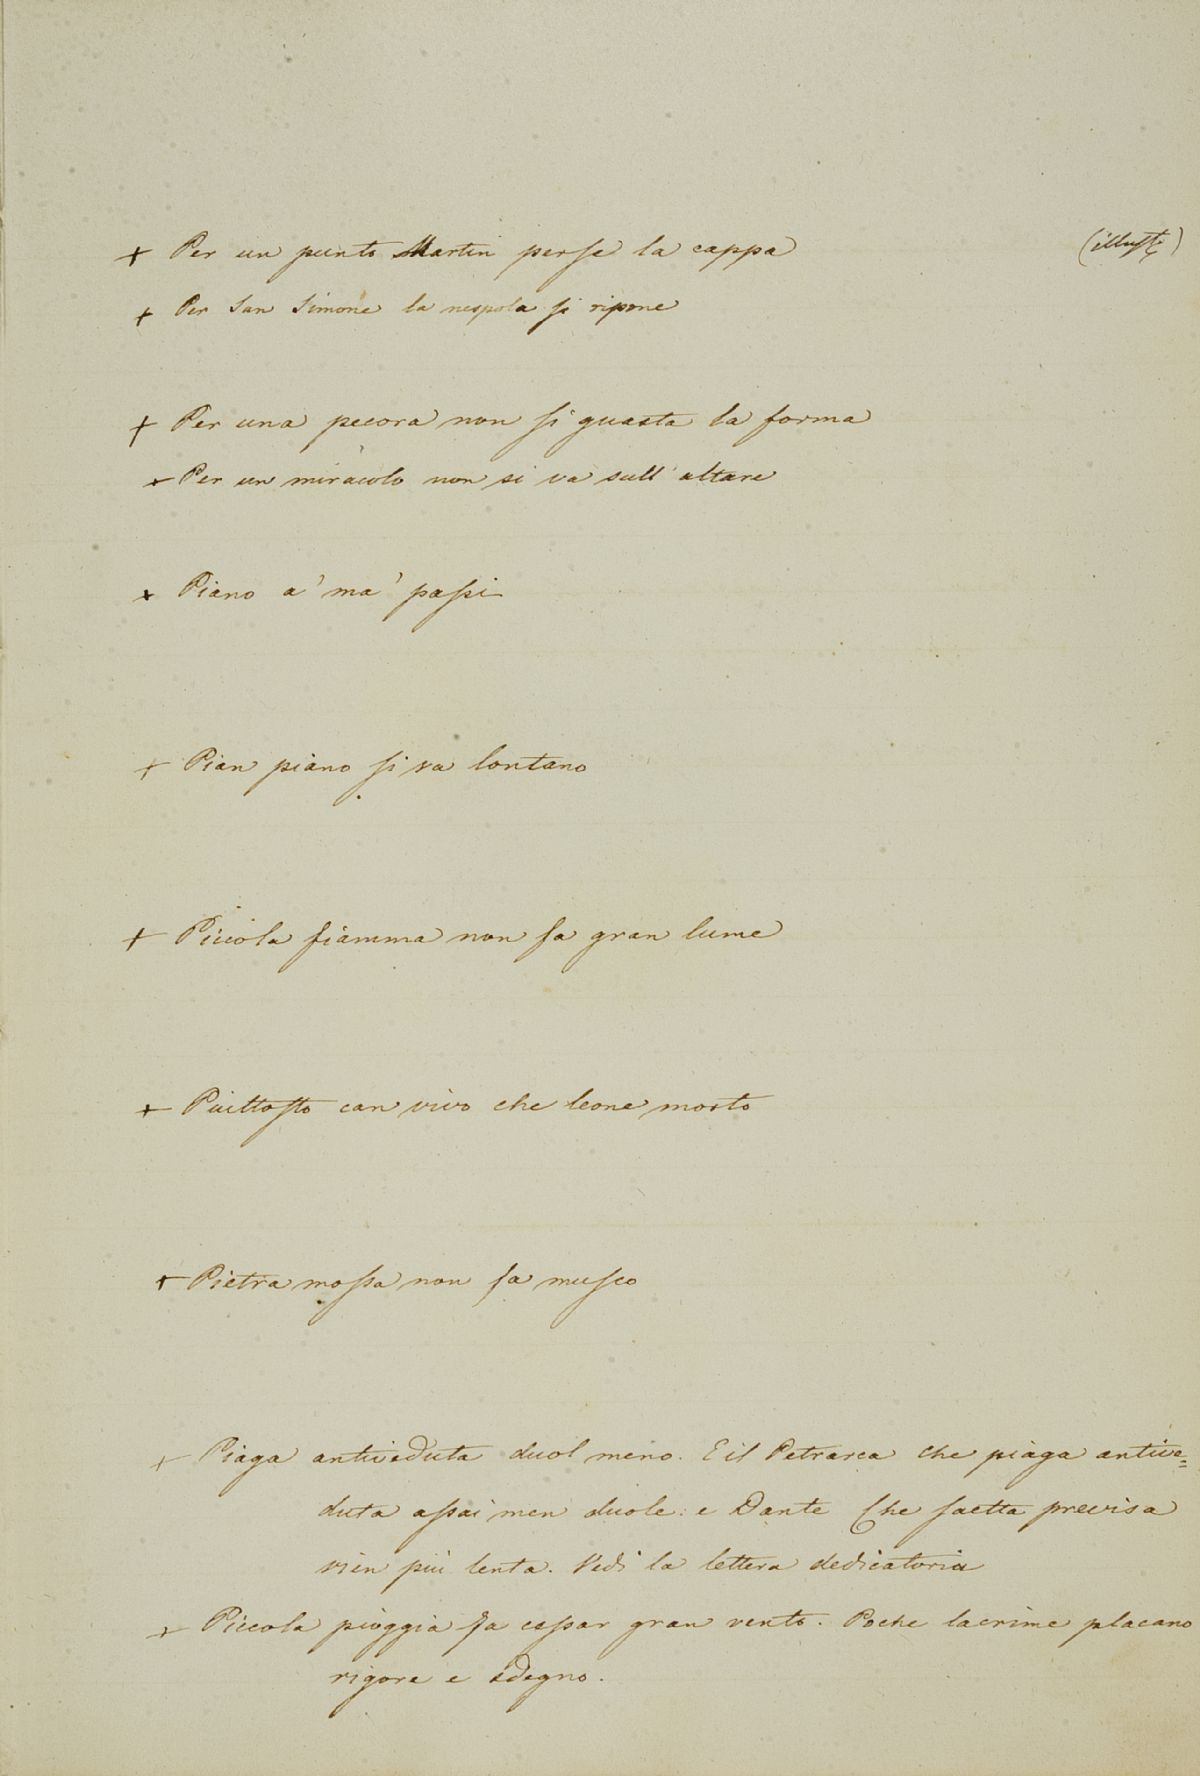 + Per un punto Martin perse la cappa (illust.)
+ Per San Simone la nespola si ripone
+ Per una pecora non si guasta la forma
+ Per un miracolo non si va sull'altare
+ Piano a' ma' passi
+ Pian piano si va lontano
+ Piccola fiamma non fa gran lume
+ Piuttosto can vivo che leone morto
+ Pietra mossa non fa musco
+ Piaga antiveduta duol meno. E il Petrarca che piaga antive=
duta assai men duole: e Dante Che saetta previsa
vien più lenta. Vedi la lettera dedicatoria
+ Piccola pioggia fa cessar gran vento. Poche lacrime placano
rigore e sdegno.